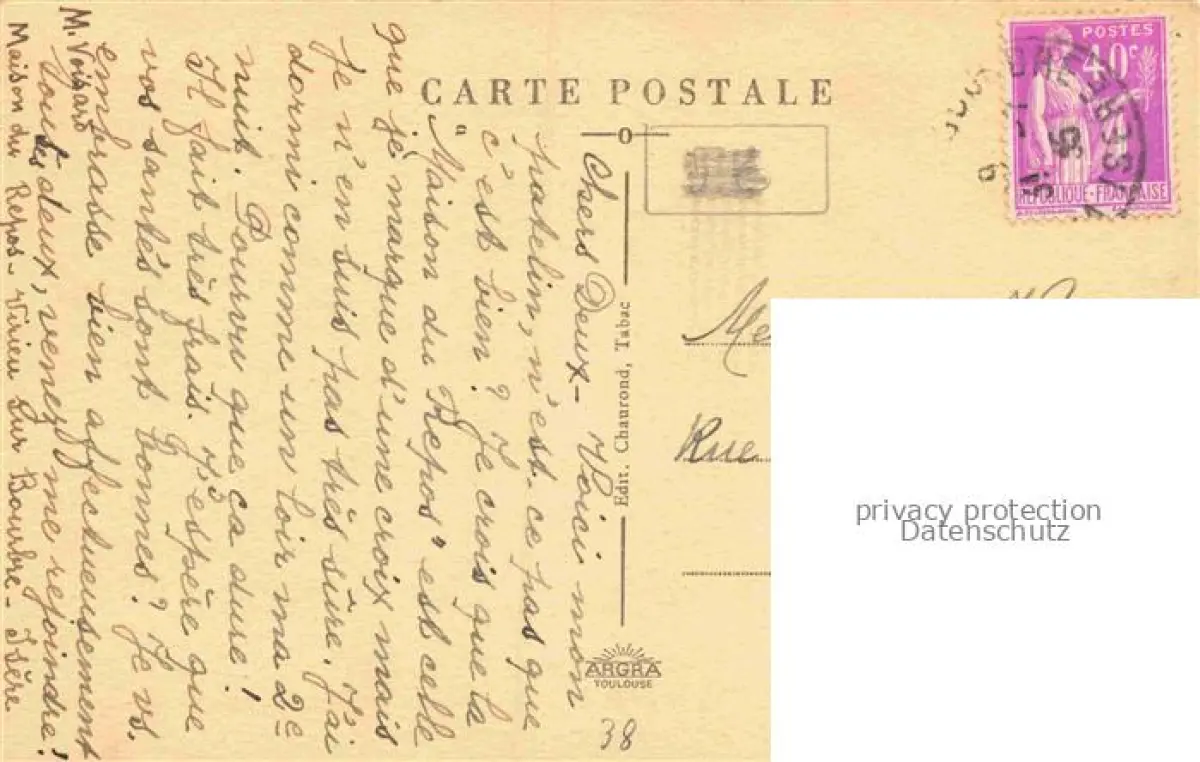 CARTE POSTALE
Chers Deux - Voici mon
patelin, n'est-ce pas que
c'est bien ? Je crois que la
"Maison du Repos" est celle
que je marque d'une croix mais
je n'en suis pas très sûre. J'ai
dormi comme un loir ma 2e
nuit. Pourvu que ça dure !
Il fait très frais. J'espère que
vos santés sont bonnes ? Je vs.
embrasse bien affectueusement
tous ls deux, venez me rejoindre !
M. Voisard
Maison du Repos - Virieu sur Bourbre - Isère
Edit. Chaurond, Tabac
ARGRA
TOULOUSE
38
POSTES
40c
REPUBLIQUE-FRANÇAISE
Rue
privacy protection
Datenschutz